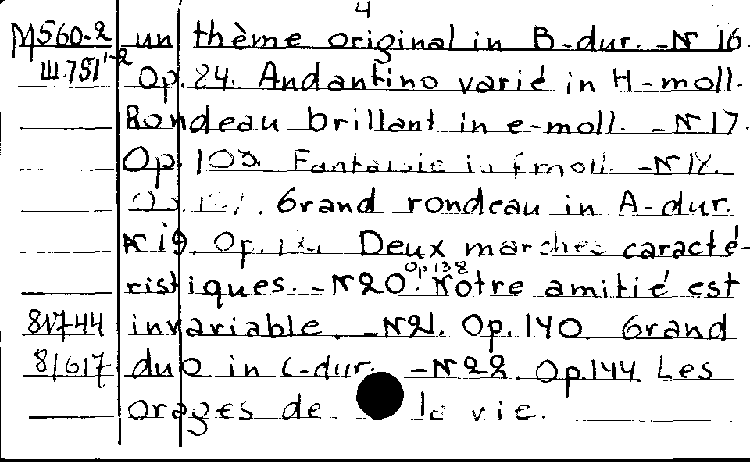 4
M560-2 un thème original in B-dur. -N 16.
Ш.751¹⁻² Op.24. Andantino varié in H-moll.
Rondeau brillant in e-moll. -N 17.
Op 103. Fantaisie in fmoll. -N 18.
Grand rondeau in A-dur.
N 19. Op. Deux marches caracté-
ristiques. -N 20. Op 138 Notre amitié est
81744 invariable. -N 21. Op. 140. Grand
81617 duo in C-dur. -N 22. Op.144. Les
orages de la vie.